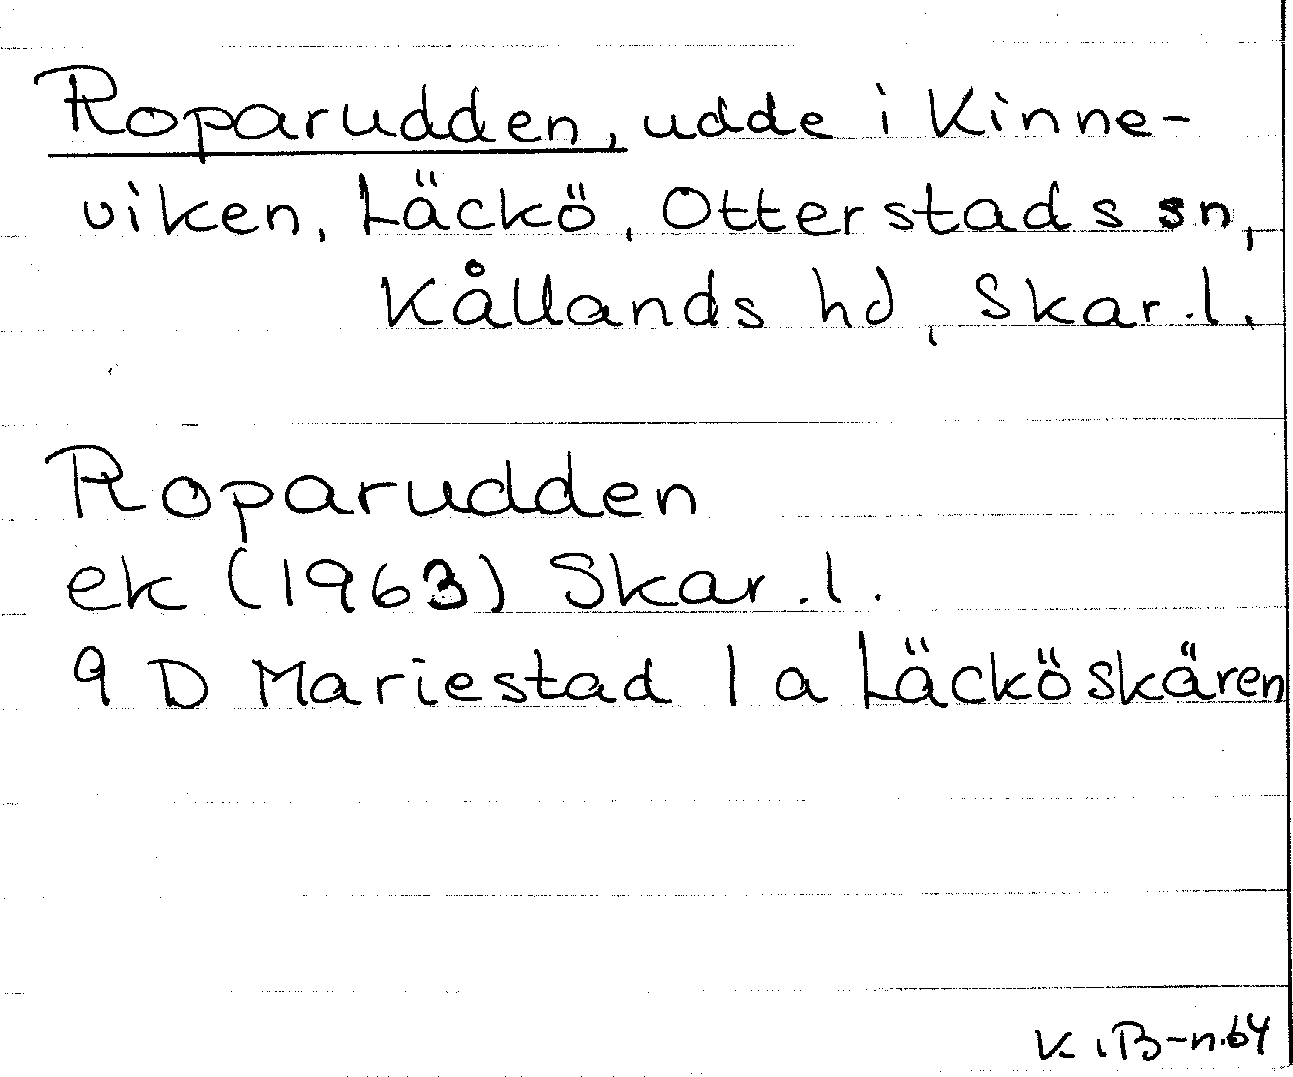 Roparudden, udde i Kinne-
viken, Läckö, Otterstads sn,
Kållands hd, Skar.l.
Roparudden
ek (1963) Skar.l.
9 D Mariestad 1 a Läcköskären
K.B-n.64